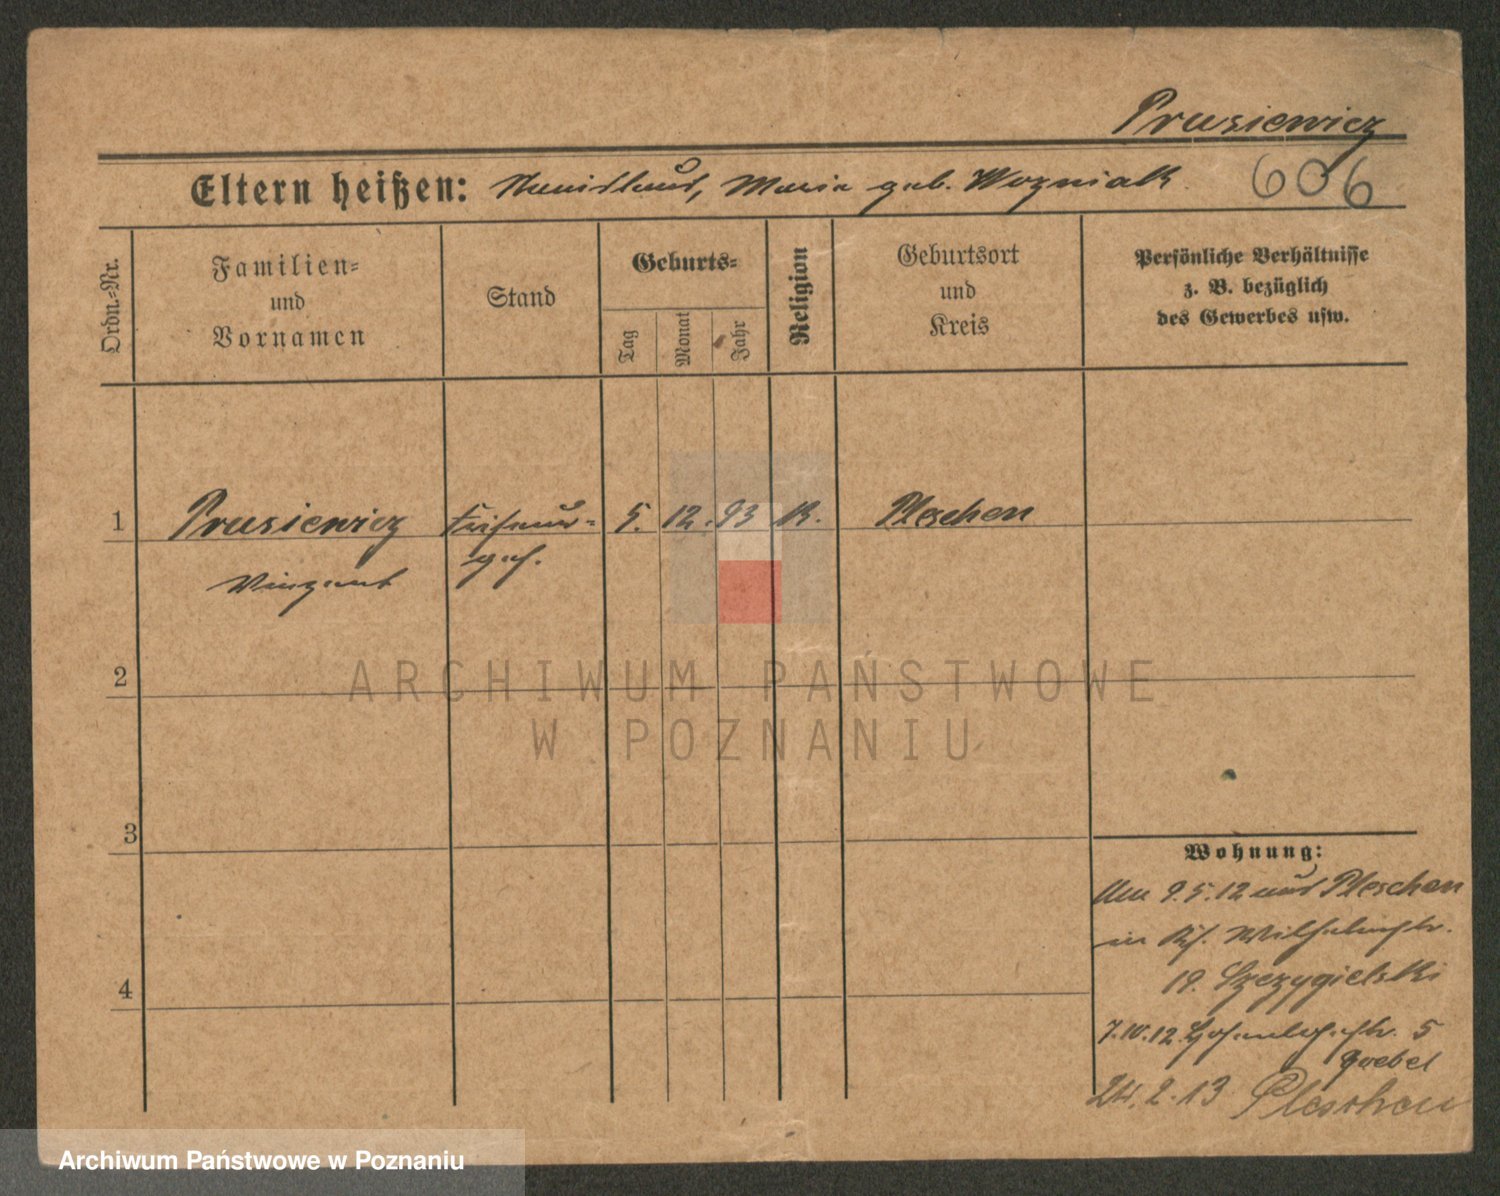 Prusiewicz
Eltern heißen: Stanislaus, Maria geb. Wozniak
606
Ordn.-Nr.
Familien-
und
Vornamen
Stand
Geburts-
Tag
Monat
Jahr
Religion
Geburtsort
und
Kreis
Persönliche Verhältnisse
z. B. bezüglich
des Gewerbes usw.
1 Prusiewicz Friseur- 5. 12. 93 K. Pleschen
Vinzent geh.
2
ARCHIWUM PAŃSTWOWE
W POZNANIU
3
4
Wohnung:
Am 9.5.12 aus Pleschen
in Wilhelmstr.
19. Szczygielski
7.10.12. Hohenlohestr. 5
Goebel
24.2.13 Pleschen
Archiwum Państwowe w Poznaniu